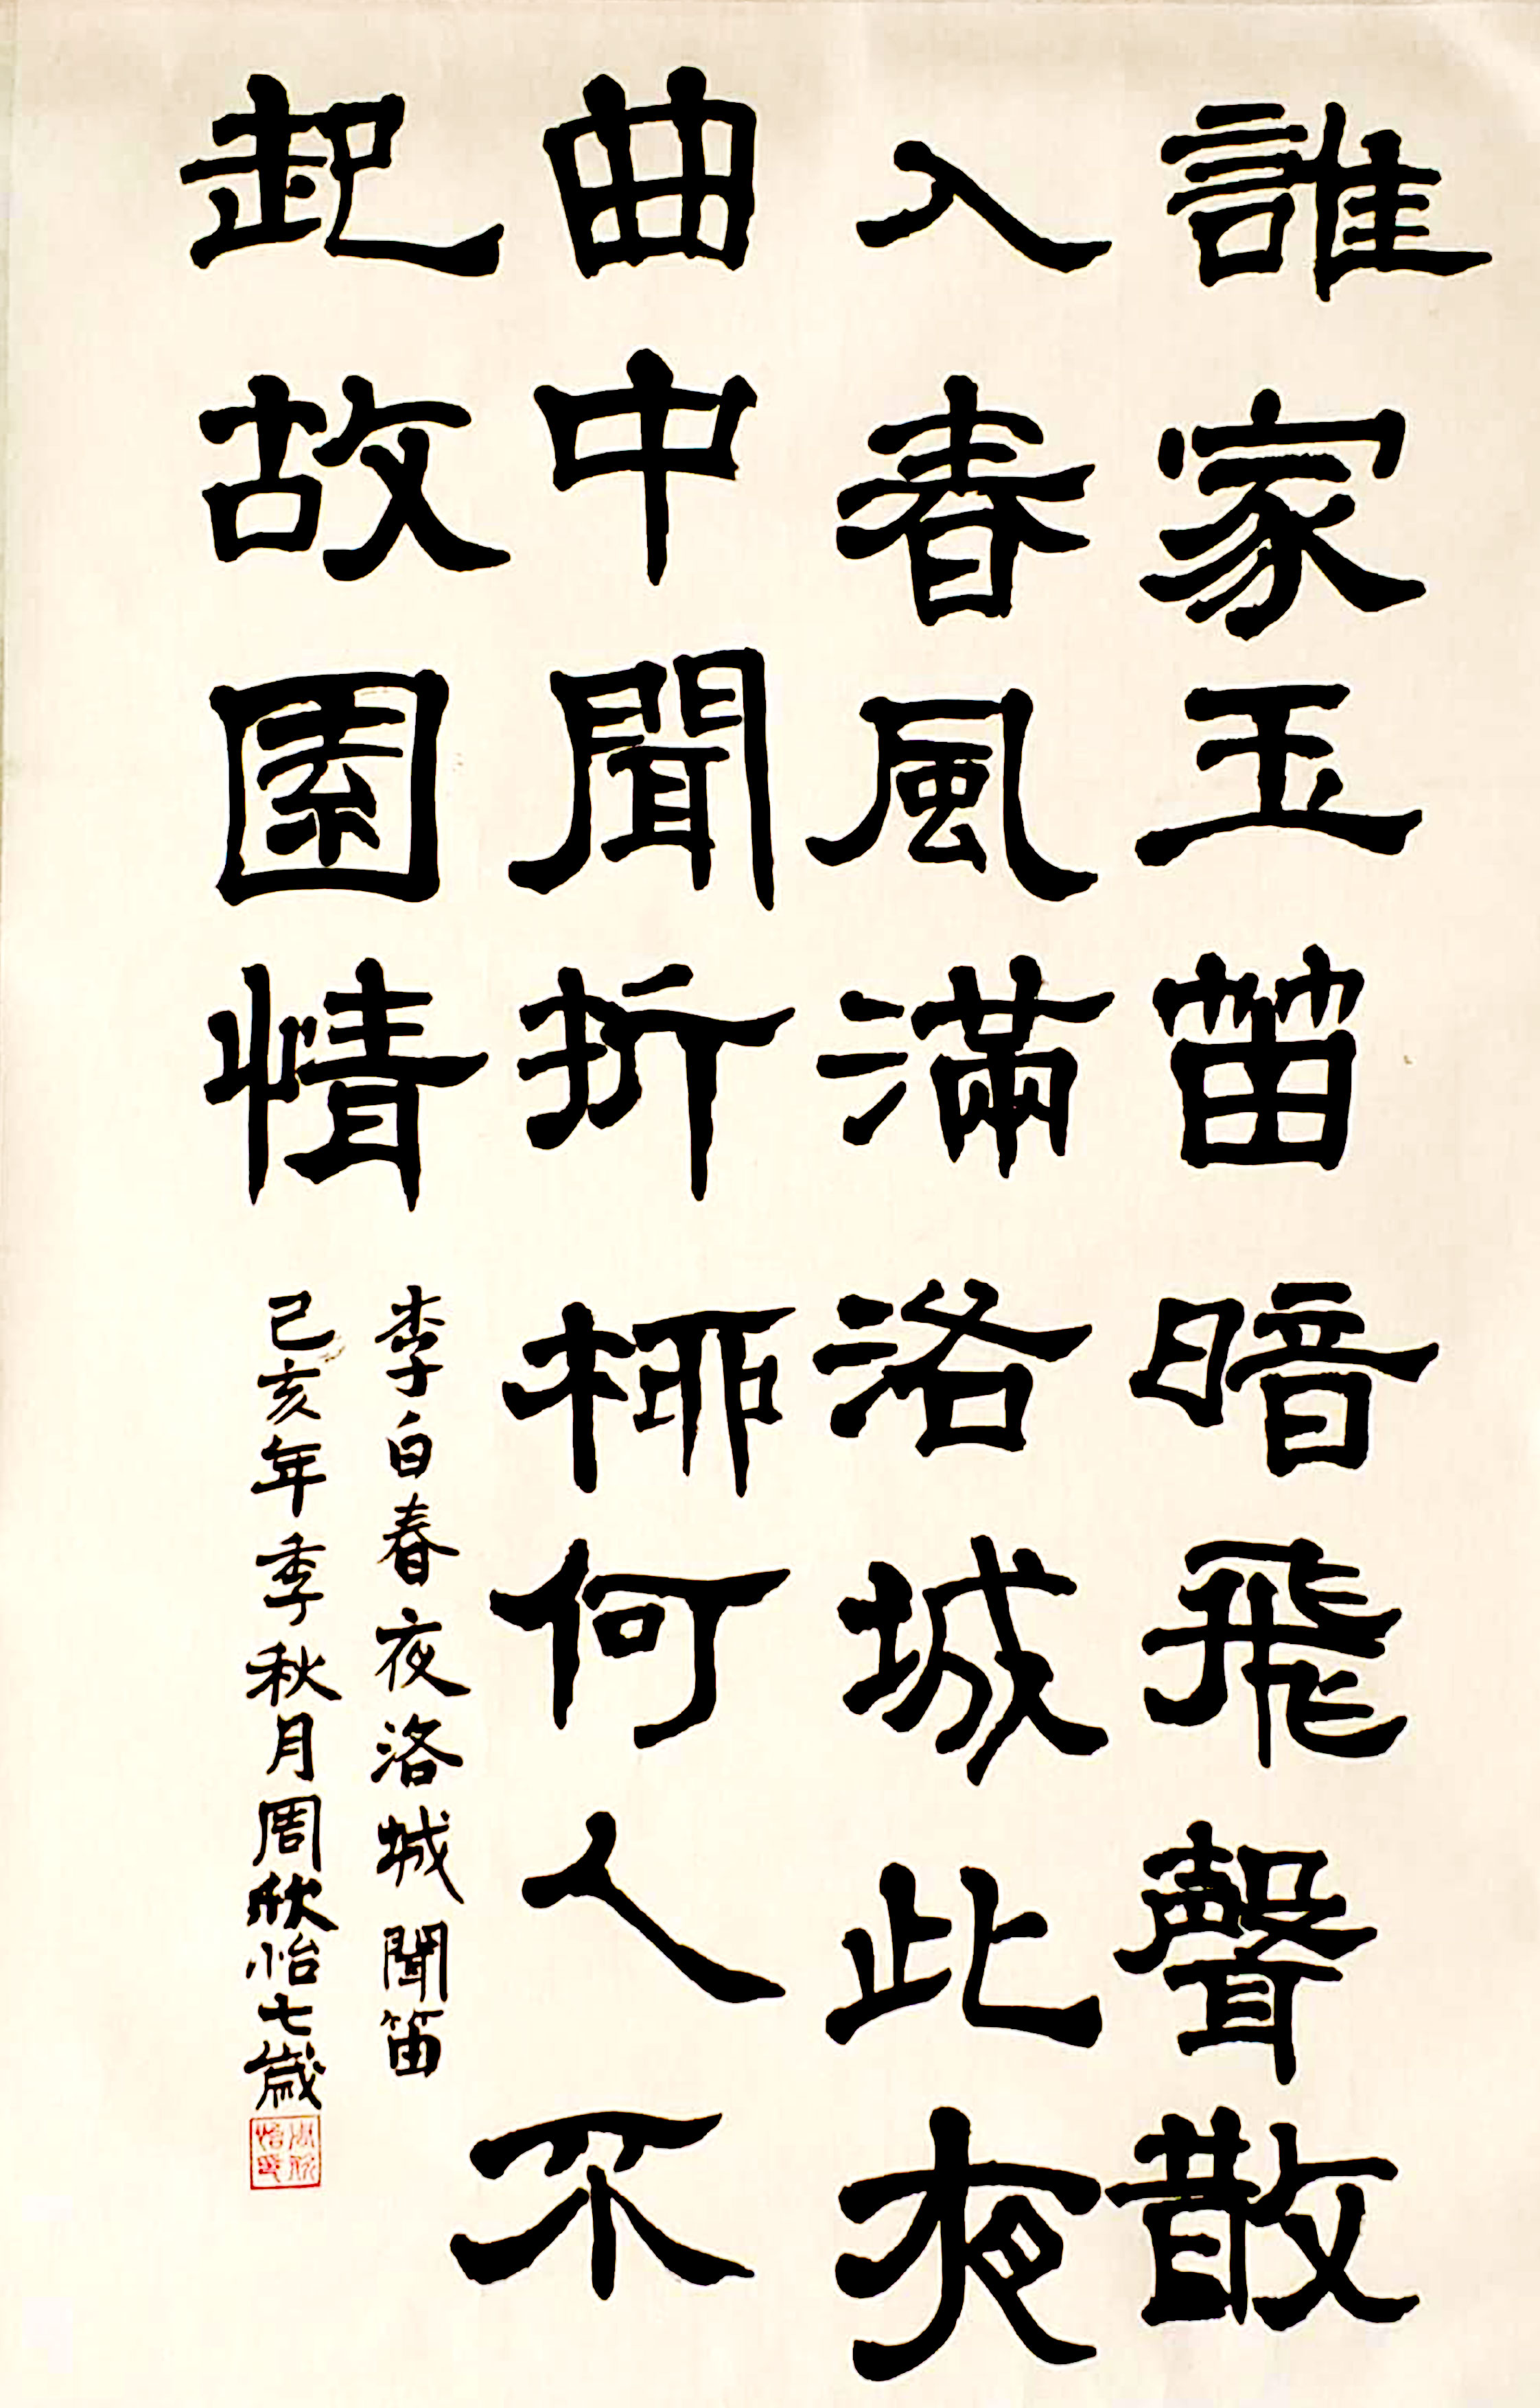 誰家玉笛暗飛聲散
入春風滿洛城此夜
曲中聞折柳何人不
起故園情
李白春夜洛城聞笛
己亥年季秋月周欣怡七歲